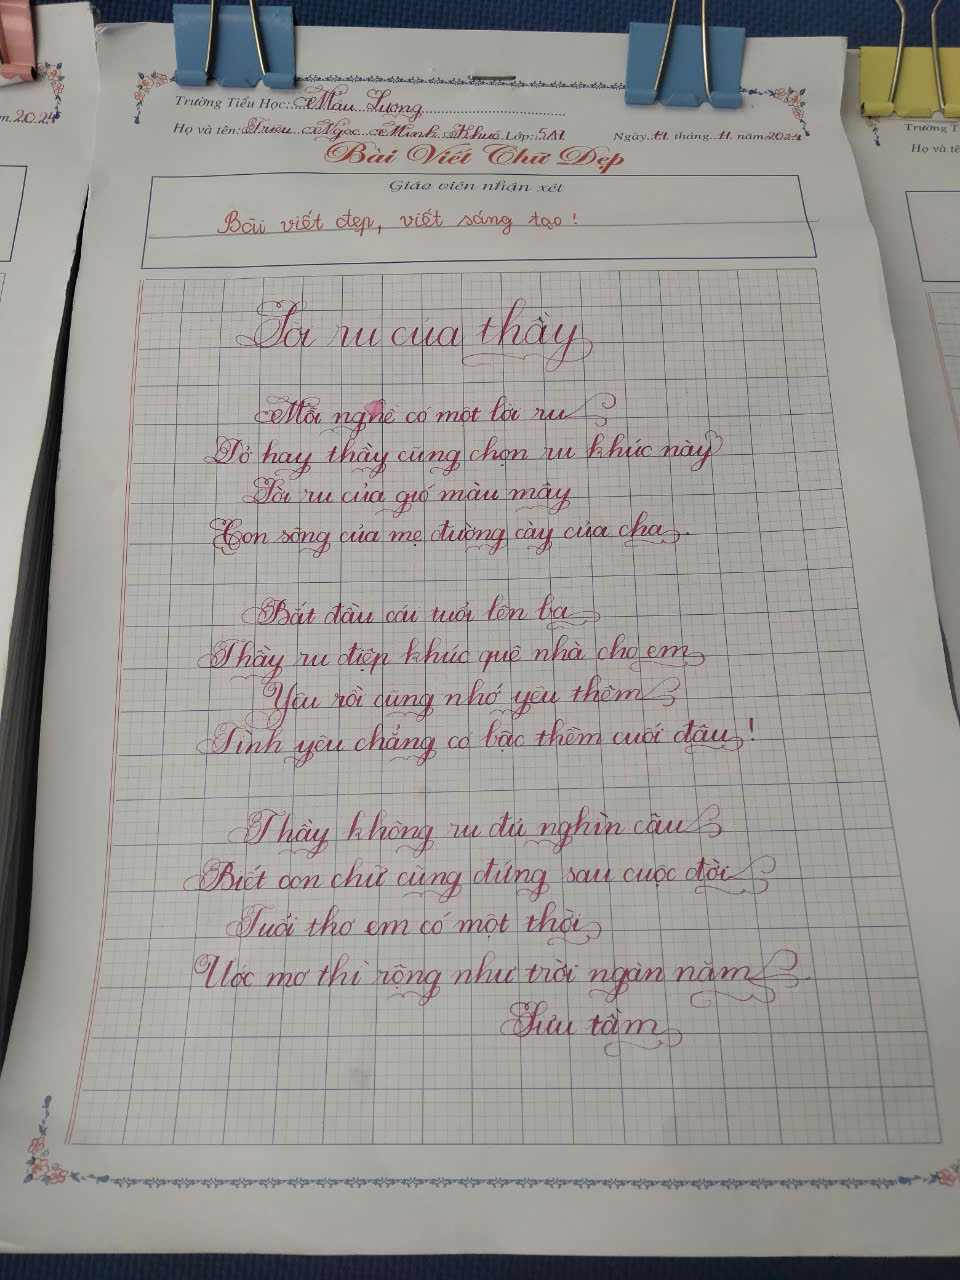 m.2024
Trường Tiểu Học:...Mậu Lương
Họ và tên: Triệu Ngọc Minh Khuê Lớp: 5A1 Ngày 11 tháng 11 năm 2024
Bài Viết Chữ Đẹp
Giáo viên nhận xét
Bài viết đẹp, viết sáng tạo!
Lời ru của thầy
Mỗi nghề có một lời ru
Dở hay thầy cũng chọn ru khúc này
Lời ru của gió màu mây
Con sông của mẹ đường cày của cha.
Bắt đầu cái tuổi lên ba
Thầy ru điệp khúc quê nhà cho em
Yêu rồi cũng nhớ yêu thêm
Tình yêu chẳng có bậc thềm cuối đâu!
Thầy không ru đủ nghìn câu
Biết con chữ cũng đứng sau cuộc đời
Tuổi thơ em có một thời
Ước mơ thì rộng như trời ngàn năm.
Sưu tầm
Trường T
Họ và tê